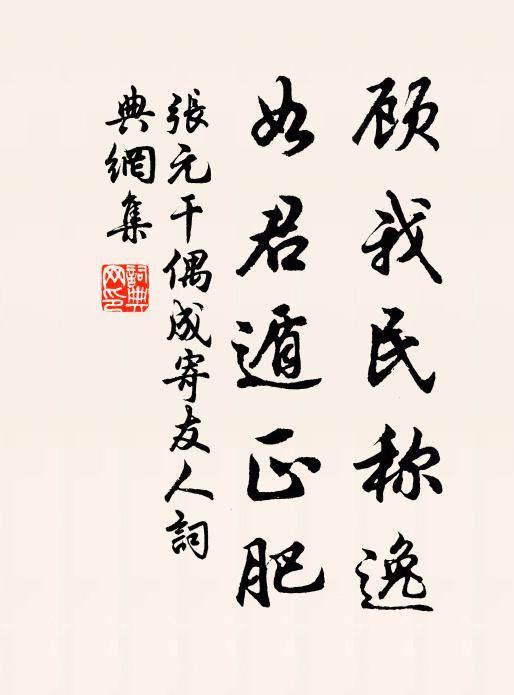 顾我民称逸
如君遁正肥
張元干偶成寄友人詞
典網集
詞典网印